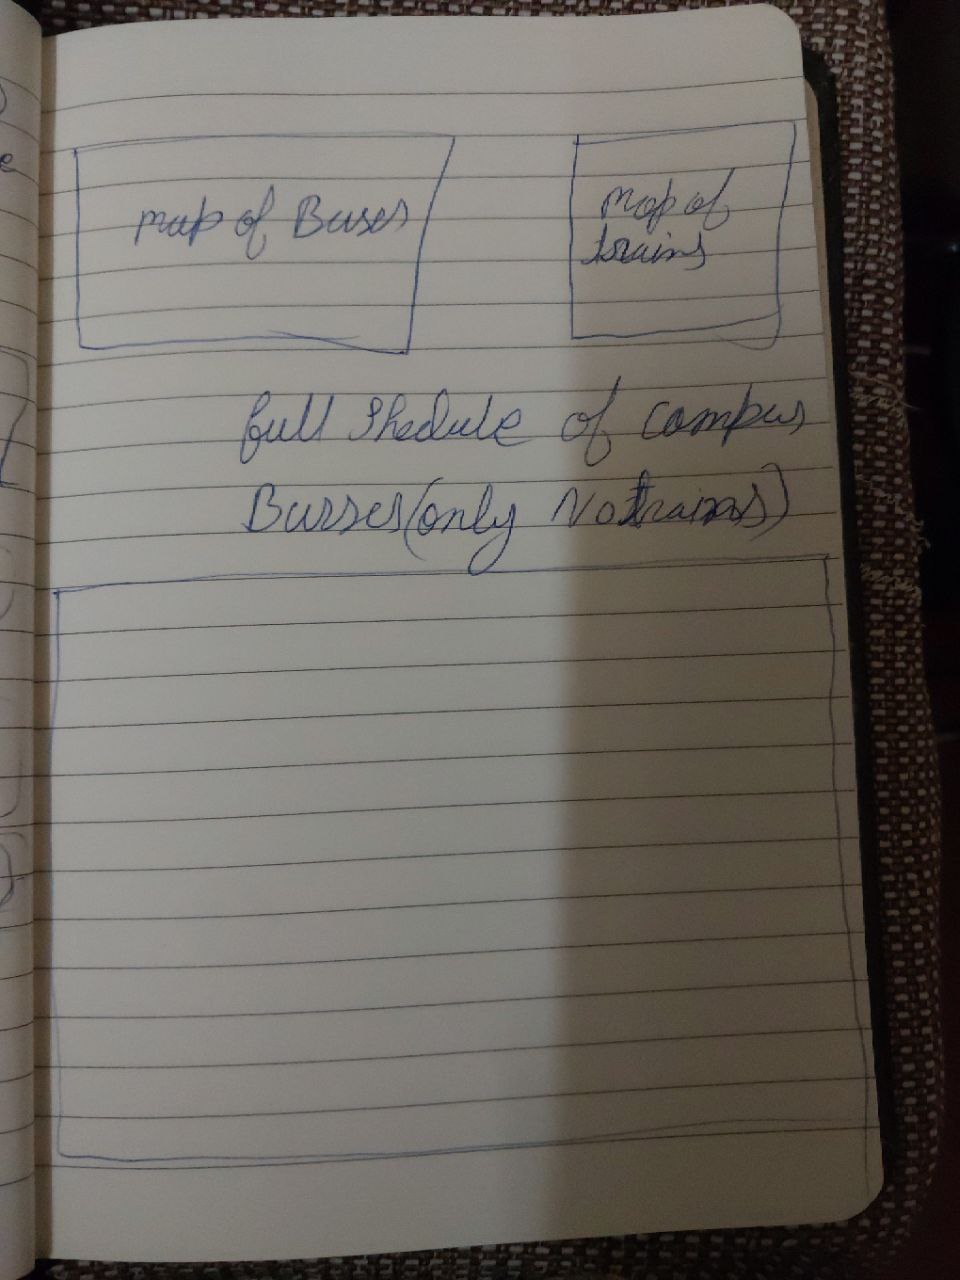 map of Buses
map of
trains
full Shedule of campus
Busses(only No trains)